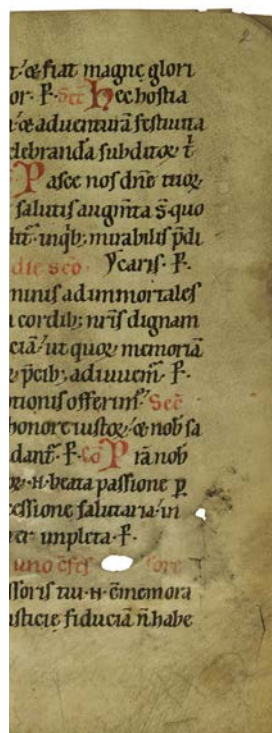 2
t & fiat magnę glori
or. P. Sec̄ Hec hostia
& aduenturā festiuita
lebranda subditoꝝ t̄
Pasce nos dn̄e tuoꝝ
salutis augm̄ta s̄. quo
inqb; mirabilis p̄di
die sc̄o ẏcaris. P.
ninis ad immortales
cordib; nr̄is dignam
ciā ut quoꝝ memoriā
p̄cib; adiuuem̄. P.
tionis offerim̄ Sec̄
honore iustoꝝ & nob̄ sa
dant̄. P. Co P rā nob̄
oꝝ. N. beata passione ꝑ
cessione salutaria in
er impleta. P.
uno c̄fes sore
ssoris tui. N. c̄memora
sticie fiduciā n̄ habe